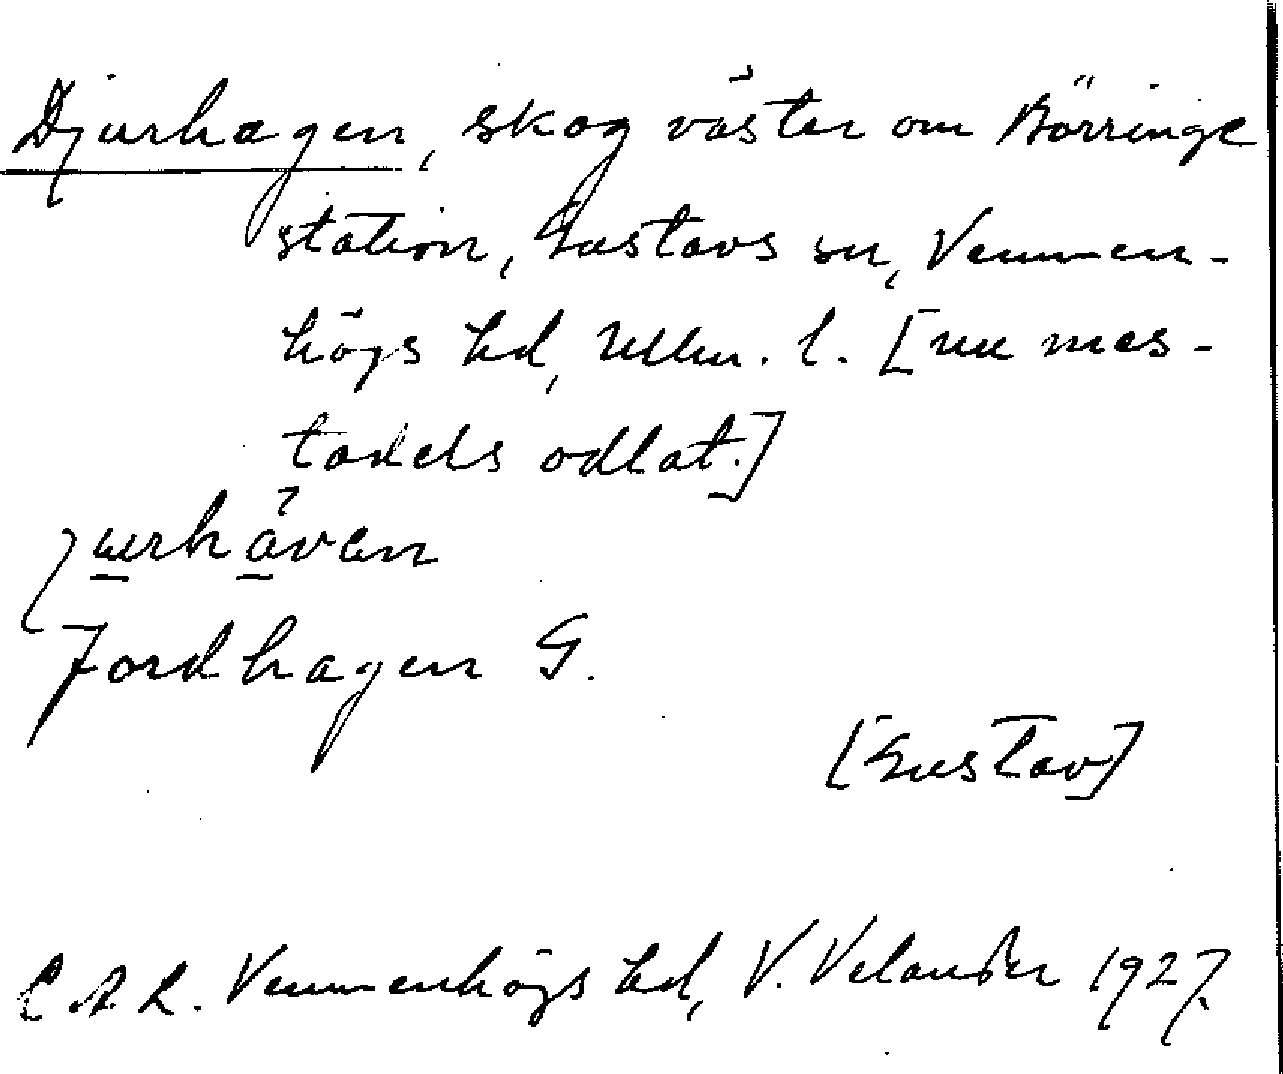 Djurhagen, skog väster om Börringe
station, Gustavs sn, Vemmen-
högs hd, Mlm. l. [nu mes-
tadels odlat.]
jurhåven
Jordhagen G.
[Gustav]
L A L. Vemmenhögs hd, V. Velander 1927.